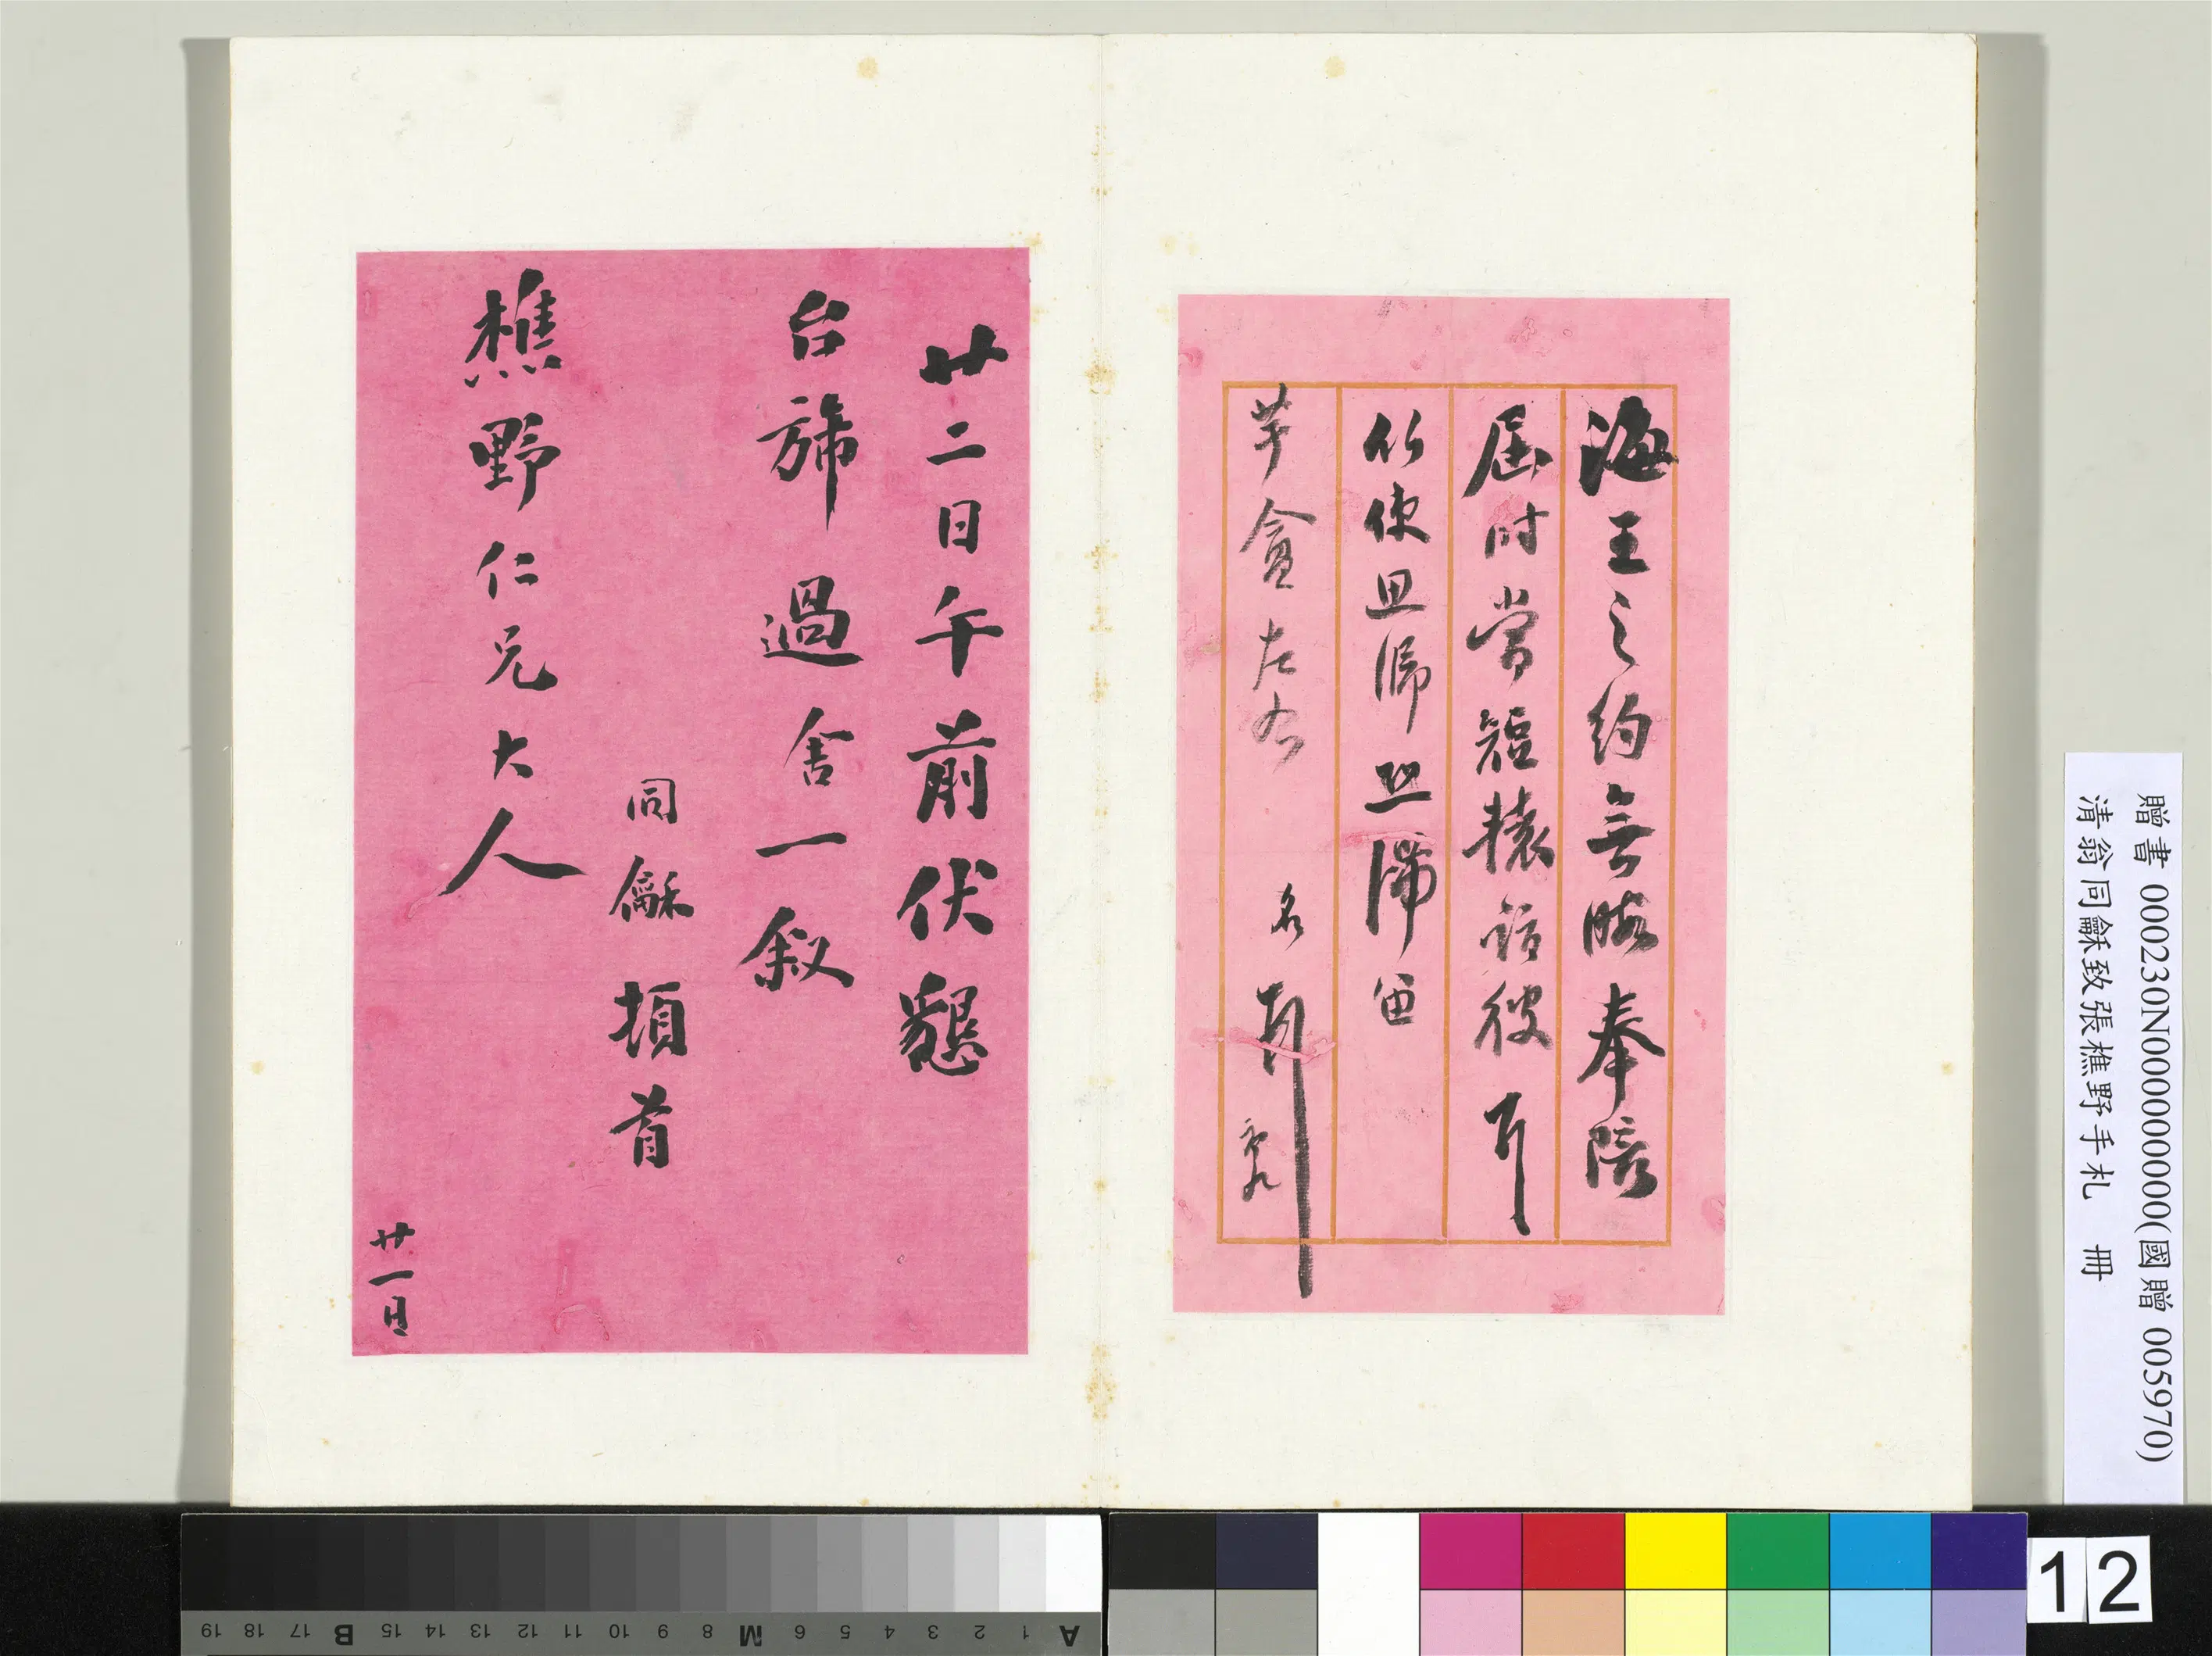 海王之約無暇奉陪
屆時當短轅詣彼耳
竹使且歸恐滯留
芋龕左右
名 頓 初九
廿二日午前伏懇
台旆過舍一敘
同龢頓首
樵野仁兄大人
廿一日
贈書 000230N000000000(國贈 005970)
清翁同龢致張樵野手札 冊
12
A 1 2 3 4 5 6 M 8 9 10 11 12 13 14 15 B 17 18 19